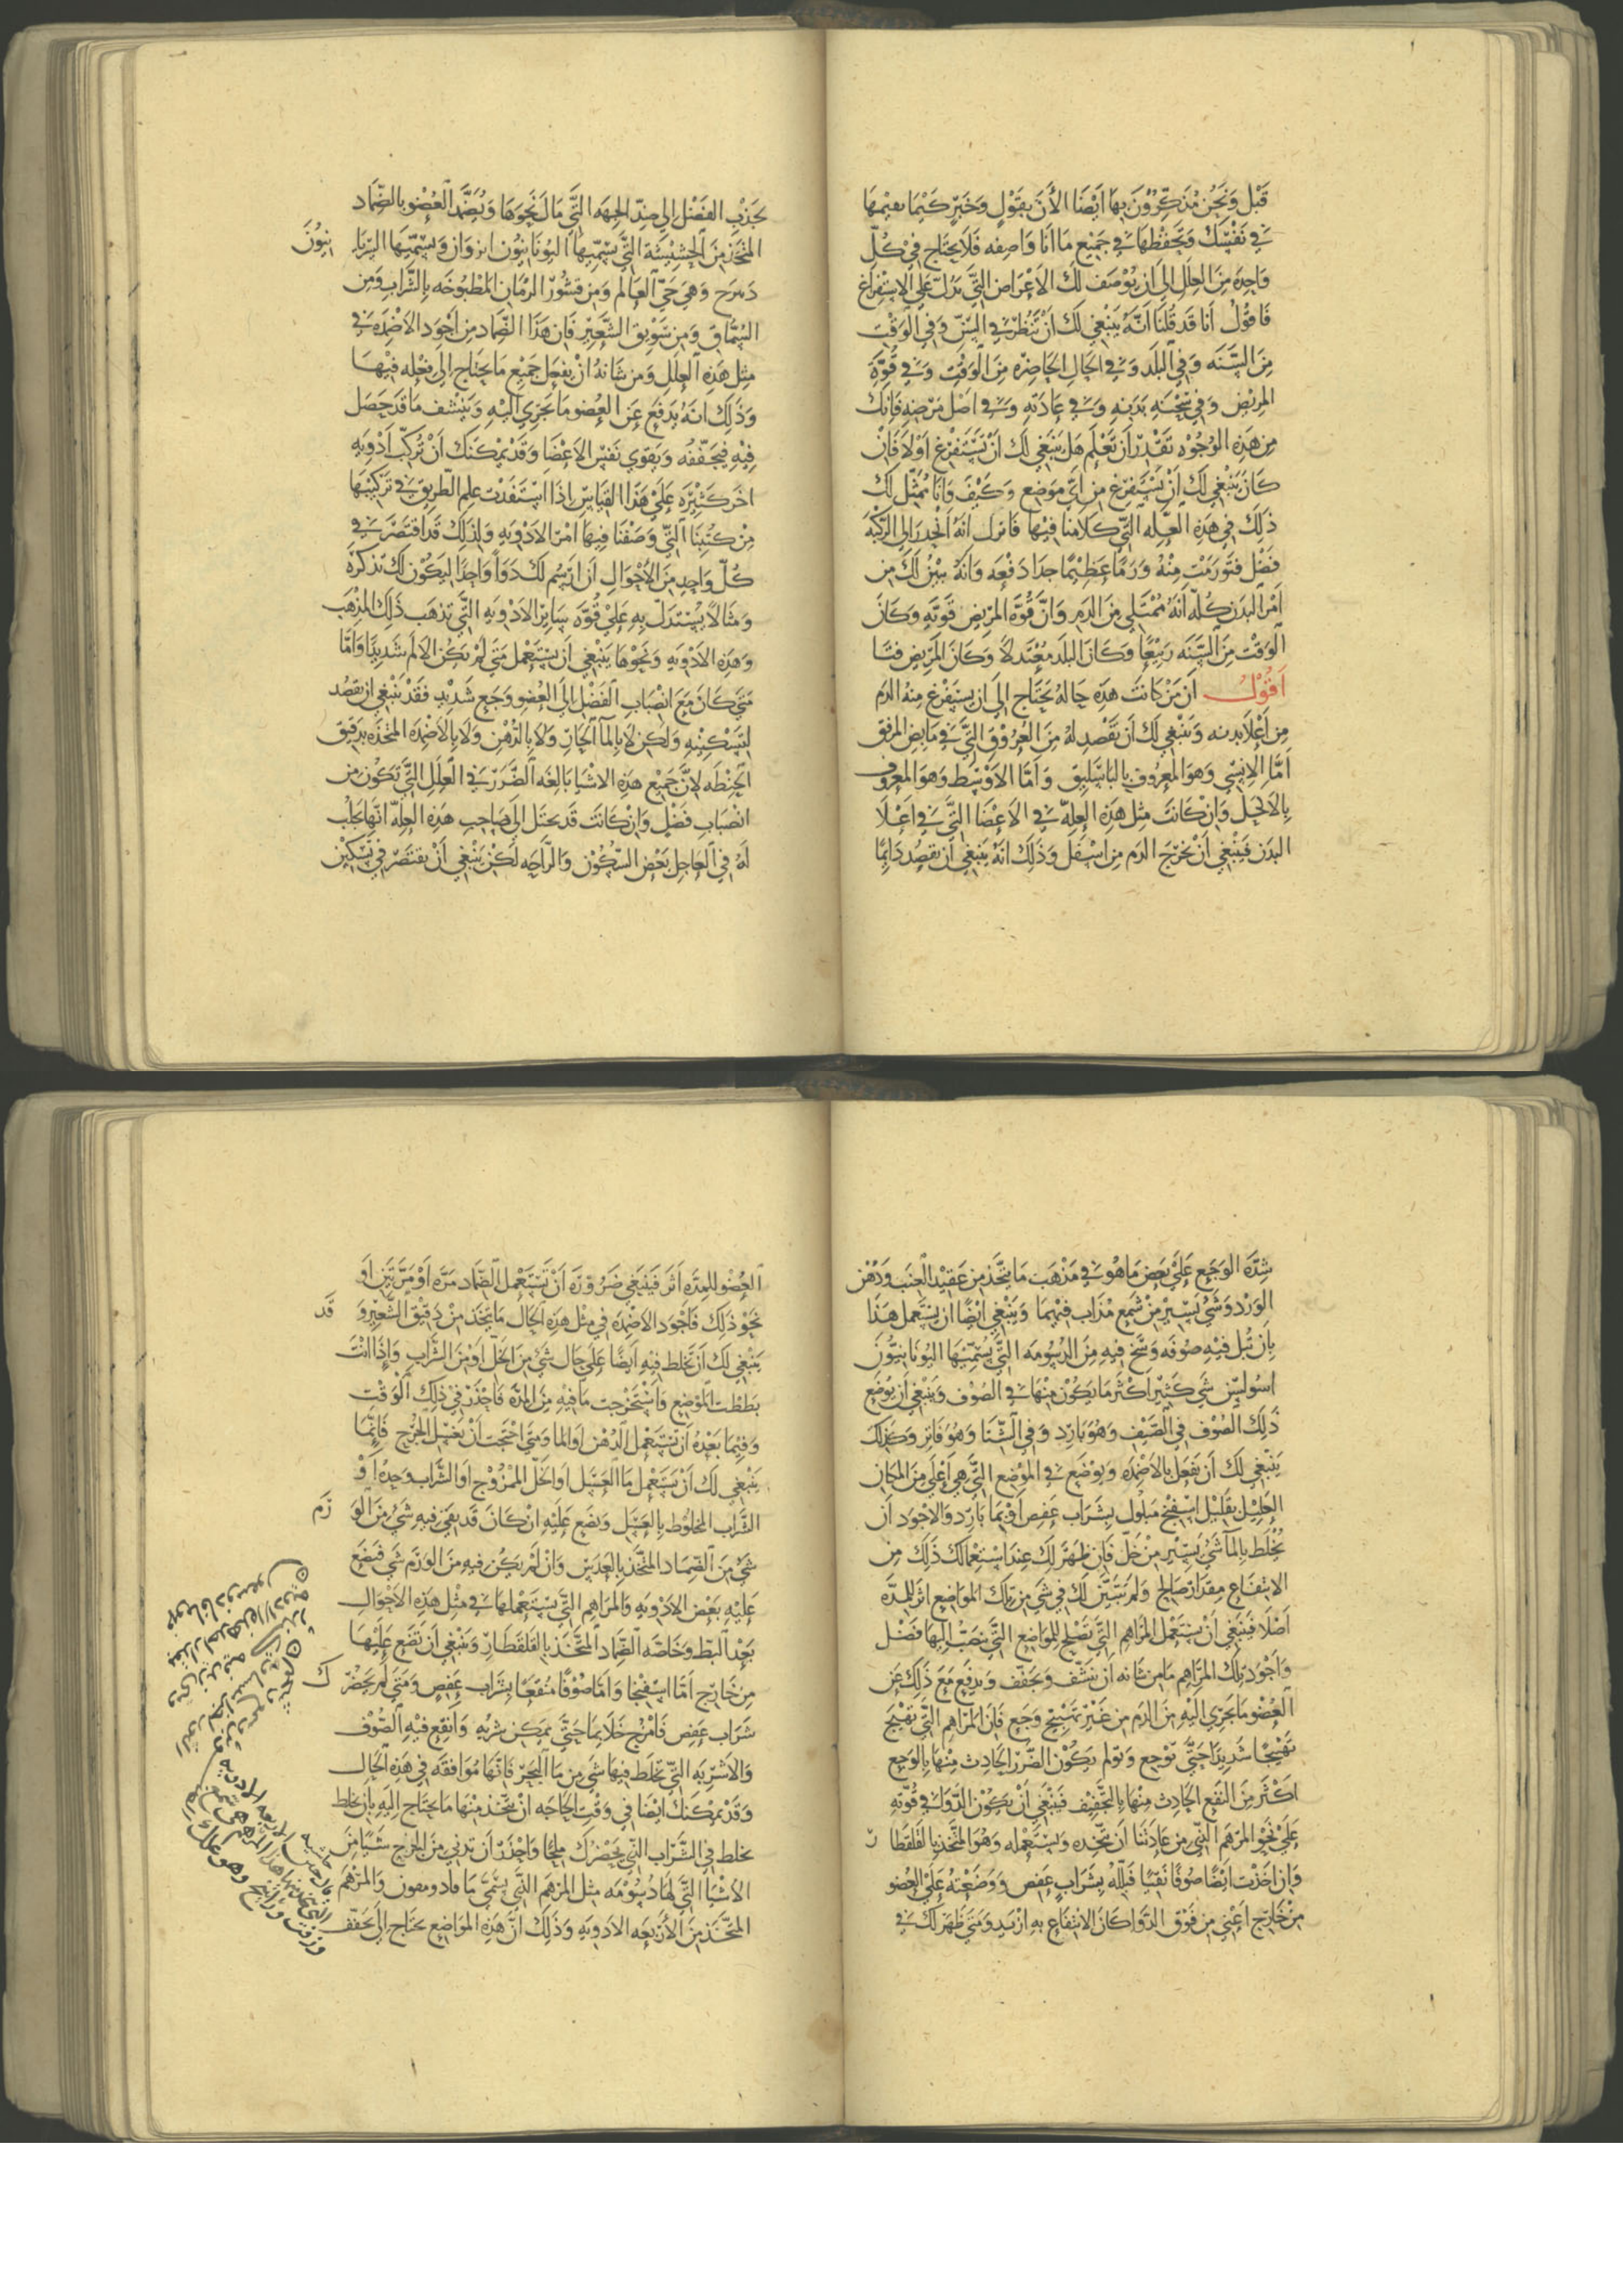 قَبْل وَنَحْنُ مُذَكِّرُوْنَ بِهَا اَيْضًا الأَنَ بِقَوْلٍ وَخَبَرٍ كَيْمَا تفهمهَا
في نَفْسِكَ وَتَحْفَظُهَا في جَمِيْع مَا انَا وَاصِفه فَلَا يحتَاج في كُلِّ
وَاحِدَه مِنَ العِلَل الى ان يُوْصَف لَكَ الاَعْرَاض التَّي تَدُلّ عَلَى الاسْتِفْراغ
فَاقُوْلُ اَنَا قَد قُلنَا انَّهُ يَنبَغِي لَكَ اَنْ تَنْظُرَ في السِّنّ وَفي الوَقْت
مِنَ السَّنَه وَفي البَلَد وَفي الحَال الحَاضِرَه مِنَ الوَقْتِ وَفي قُوَّةِ
المَرِيْض وَفي سَحْنَهِ بَدَنِهِ وَفي عَادَتِهِ وَفي اصْل مَرَضِهِ فَانِّكَ
مِن هَذِهِ الوُجُوْه تَقْدِر اَن تَعْلَم هَل يَنبَغِي لَكَ اَنْ تَسْتَفْرِغ اَوْلَا فَاَنْ
كَانَ يَنْبَغِي لَكَ اَنْ تَسْتَفرِغ مِن اَيِّ مَوضِع وَكَيْفَ وَانَا مُمَثِّل لَكَ
ذَلِكَ فى هَذِهِ العِلّه التَّي كَلَامنَا فِيْهَا فَانزل انَهُ انْحَدَرَ الى الرُّكْبَه
فَضْل فَتَورَّمَتْ مِنْهُ وَرَمًا عَظِيْمًا جدَا دَفْعَه وَانَهُ تبيّن لَكَ مِن
اَمْرِ البَدَن كُلّه اَنَهُ مُمْتَلِي مِنَ الدَمِ وَانَّ قُوَّةَ المَرِيْض قَوِيَّهٍ وَكَانَ
الوَقْت مِنَ السَّنَه رَبِيْعًا وَكَانَ البَلَد مُعْتَدلاً وَكَانَ المَرِيْض فتًا
اَقُوْلُ اَن مَنْ كَانَتْ هَذِهِ حَالهُ يَحْتَاج الى ان يستَفْرغ مِنهُ الدَم
مِن اَعْلَا بَدنه وَيَنْبَغي لَكَ اَن تَفْصِد لهُ مِنَ العُرُوْق التَّي في مَابِض المِرفَق
اَمَّا الاِنسِي وَهوَ المَعرُوْف بِالبَاسَلِيْق وَاَمَّا الاَوْسَط وَهوَ المعرُوْف
بِالاكْحَل وَانْ كَانَتْ مِثل هَذِهِ العِلَّه في الاَعْضَا التَّي في اَعْلَا
البَدَن فَيَنْبَغي اَنْ تَخْرُج الدَم مِن اَسْفَل وَذَلِكَ انَهُ يَنبَغِي اَن تقصُد دَائِمًا
بجَذْبِ الفَضْل الى ضِدّ الجِهَه التَّي مَالَ نَحْوَهَا وَيُضَمَّد العُضْو بالضِّمَاد
المُتَّخذ مِنَ الحَشِيْشَة التَّي يَسَمِّيهَا اليُونَانِيُون ايزوَان وَيسَمِّيهَا السِّريَا
نِيُوْنَ
دَمرح وَهِيَ حَيّ العَالم وَمِن قشُوْر الرُمَّان المَطْبُوخَه بِالشَّرَابِ وَمِن
السُمَّاق وَمِن سَوِيْق الشَّعِيْر فَان هَذَا الضِّمَاد مِن اَجْوَد الاَضْمِدَه في
مِثل هَذِهِ العِلَل وَمن شَانهُ اَنْ يفعَل جَمِيْع مَا يحتَاج الى فِعْلِه فِيْهَا
وَذَلِكَ انَهُ يَدفَع عَن العُضو مَا يَجرِي اِلَيْهِ وَيَنشف مَا قَد حَصَل
فِيْهِ فَيُجَفّفُه وَيَقوى نَفس الاَعْضَا وَقَدْ يُمكِنَكَ اَنْ تُرَكِّب اَدْوِيَه
اخَر كَثِيْرَه عَلَى هَذَا القِيَاس اِذَا اسْتَفَدْتَ عِلم الطَرِيق في تَرَكِيْبهَا
مِنْ كُتبِنَا التَّي وَصَفْنَا فِيهَا امْر الاَدْوِيَهِ وَلِذَلِكَ قَد اقتَصَر في
كُلّ وَاحِدٍ مِنَ الأحْوَالِ اَن ارسُم لكَ دَوَاً وَاحِدًا لِيَكُوْنَ لَكَ تذكرَه
وَمثَالاً يُستدَلّ بِهِ عَلَى قُوَّه سَائِر الاَدْوِيَهِ التَّي تَذهَب ذَلِكَ المَذْهَب
وَهَذِهِ الاَدْوِيَه وَنَحْوُهَا يَنْبَغي اَن يستَعْمل مَتَى لَمْ يَكُن الاَلَم شَدِيدًا وَامَّا
مَتَى كَانَ مَعَ انْصِبَابِ الفَضْل الى العُضْو وَجَع شَدِيْد فقَدْ يَنْبَغي ان تقصُد
لتَسْكِيْنِهِ وَلَكِن لَا بِالمَآ الحَارّ وَلَا بِالدُهْنِ وَلَا بِالاَضْمِدَه المتّخذَه بدَقيق
الحِنْطَه لانَّ جَمِيْع هَذِهِ الاشْيَا بَالِغَه الضَّرَر في العِلَل التَّي تكُوْن من
انْصِبَابِ فَضْلٍ وَانْ كَانَتْ قَد يخيّل الى صَاحِبِ هَذِهِ العِلّه انّهَا تجلب
لَهُ في العَاجِل بَعْض السّكُوْن وَالرَّاحَه لَكِنْ يَنْبَغي اَنْ يقتَصَر في تَسْكِين
شِدَّه الوَجَع عَلَى بَعض مَا هُو في مَذْهَب مَا يتّخذ مِن عَقِيْد العِنَب وَدُهْن
الوَرْد وَشَيْ يَسِيْر مِنْ شَمَع مُذَاب فِيْهِمَا وَيَنْبَغي ايضًا ان يستَعمل هَذَا
بِاَن تُبل فِيْهِ صُوفَه وَسِخ فِيهِ مِنَ الدسُومَه التَّي يُسَمّيهَا اليُونَانِيُّون
اسُوليْس شَي كَثِيْر اكْثَر مَا يَكُوْن مِنْهَا في الصُوْف وَيَنْبَغي اَن يُوْضَع
ذَلِكَ الصُوْف في الصَّيْف وَهُوَ بَارِد وَفي الشّتَا وَهُوَ فَاتر وَكَذلِكَ
يَنْبَغِي لَكَ اَن تَفعَل بِالاَضْمِدَه وَيوْضَع في المَوْضِع التَّي هِي اَعْلَى مِنَ المكَان
العَلِيْل بِقَلِيْل اسْفِنْج مَبلُول بِشَرَاب عَفِص اَوْ بِمَا بَارِد وَالاَجْوَد اَن
تُخْلَط بِالمآ شَيْ يَسِيْر مِنْ خَلّ فَاِن ظَهَرَ لَكَ عِندَ اسْتِعْمَالكَ ذَلِكَ مِن
الانتِفَاع مِقدَار صَالح وَلَم يَتَبَيَّن لَكَ في شَي مِن تِلكَ المَوَاضِع اثر للمِدَّه
اَصْلَا فَيَنبَغي اَنْ يستَعْمل المَرَاهِم التَّي تَصْلح للمَوَاضِع التَّي ينصَبّ اليْهَا فَضْل
وَاَجْوَد تِلكَ المَرَاهِم مَا مِن شَانه اَن ينَشّف وَيجَفّف وَيدفَع مَعَ ذَلِكَ عَن
العُضْو مَا يَجرِي اِلَيْهِ مِنَ الدَم مِن غَيْر تَهْيِيْج وَجَع فَاَن المَرَاهِم التَّي تهيّج
تَهْيِيْجًا شَدِيْدًا حَتَّى تُوْجِع وَتولم يَكُوْن الضَّرَر الحَادِث مِنْهَا بِالوَجع
اكْثَر مِنَ النَفْع الحَادِث مِنْهَا بِالتّجْفِيْف فَيَنْبَغي اَنْ يَكُوْن الدَّوَا في قُوَّتهِ
عَلَى نَحْو المَرْهَم الّتى مِن عَادَتنَا اَن نتّخِذه وَيستَعْمله وَهُوَ المُتّخذ بِالقَلقَطَا
ر
وَان اخَذْتَ ايْضًا صُوفًا نَقيّا فَبَللتهُ بِشَرَاب عَفِص وَوَضَعْتهُ عَلَى العُضو
مِنْ خَارِج اَعْني مِن فَوْق الدَّوَا كَانَ الانْتِفَاع بِهِ ازْيَد وَمَتَى ظَهَرَ لَكَ في
العُضْو للمِدَّه اَثَر فَيَنبَغي ضَرُوْرَةً اَنْ تَسْتَعْمل الضِّمَاد مَرَّه اَوْ مَرَّتَيْن اَو
نَحْوَ ذَلِكَ فَاجْوَد الاَضْمِدَه في مِثْل هَذِهِ الحَال مَا يتّخذ مِنْ دَقِيْق الشَّعِيْر وَ
قَد
يَنْبَغي لَكَ اَن تَخلط فِيْهِ ايضًا عَلَى حَال شَيْ مِنَ الخَلّ اَوْ مِنَ الشَّرَاب وَاِذَا انْتَ
بَطَطْت المَوْضِع فَاسْتَخْرَجتَ مَا فِيْهِ مِنَ المِدَّه فَاحْذَر في ذَلِكَ الوَقْت
وَفِيْمَا بَعْدهُ اَن تَستَعْمل الدُهْنَ اوَ المآ وَمتَى احْتَجتَ اَنْ تَغسِل الجُرْح فَاِنّمَا
يَنْبَغي لَكَ اَنْ تَسْتَعْمل مَا العَسَل اوَ الخَلّ المَمْزُوْج اوَ الشَّرَاب وَحدهُ اَوْ
الشَّرَاب المخلُوْط بِالعَسَل وَتضَع عَلَيْهِ انْ كَانَ قَد بَقِيَ فِيهِ شَيْ مِنَ الوَ
رَم
شَيْ مِنَ الضِمَاد المُتّخَذ بِالعَدَس وَانْ لَمْ يَكُن فِيهِ مِنَ الوَرَم شَي فَتضَع
عَلَيْهِ بَعْض الاَدْوِيَه وَالمَرَاهِم التَّي يَستَعْملهَا في مِثْل هَذِهِ الاَحْوَال
بَعْدَ البَطّ وَخَاصَّه الضِّمَاد المُتَّخَذ بِالقَلقَطَارِ وَيَنْبَغي اَن تَضَع عَلَيْهَا
مِن خَارِج اَمَّا اسْفِنْجا وَامَّا صُوْفًا مُنْقَعًا بِشَرَاب عَفِصٍ وَمَتَى لَم يَحضُر
كَ
شَرَاب عَفِص فَامْزُج خَلّا بِمَا حَتَّى يمكِن شُربه وَانْقِع فِيْهِ الصُّوْف
وَالاَشْرِبَه التَّي يخلَط فِيهَا شَي مِن مَا البَحْر فَانّهَا مُوَافَقَه في هَذِهِ الحَال
وَقَدْ يُمْكنكَ ايْضًا في وَقْت الحَاجَه اَنْ يتّخذ مِنْهَا مَا يحتَاج اِليهِ بِاَن يخلط
يخلط في الشَّرَاب الّتي يَحْضرُكَ مِلحًا وَاحْذَر اَن تدني مِنَ الجُرح شَيًا مِنَ
الأَشْيَا التَّي لهَا دُسُوْمَه مثل المَرْهَم التَّي يسَمَّى مَاقادومفون وَالمَرْهَم
المتّخَذ مِنَ الاَرْبَعه الاَدْويَه وَذَلِكَ اَنَّ هَذِهِ المَوَاضِع يحتَاج الى تَجفّف
حاشيه